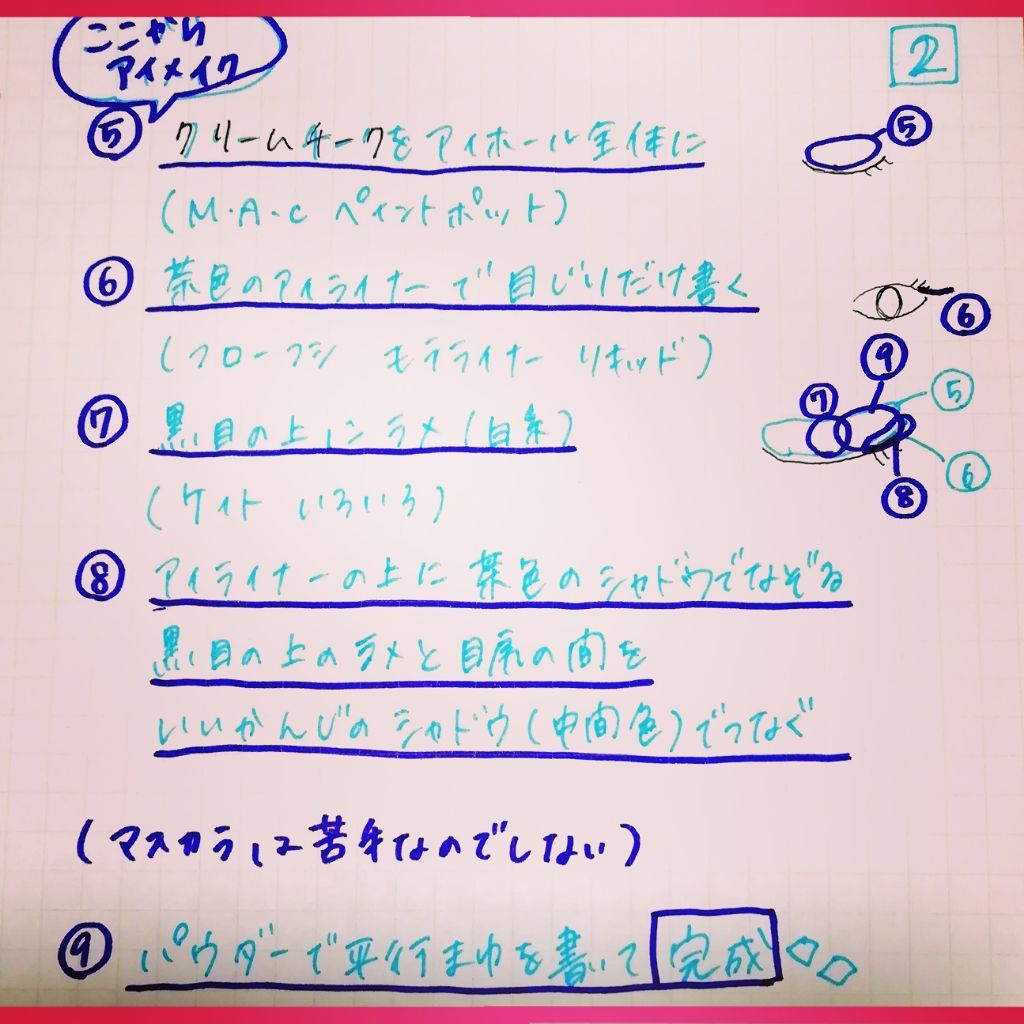 ここから
アイメイク
2
⑤ クリームチークをアイホール全体に
⑤
(M・A・C ペイントポット)
⑥ 茶色のアイライナーで目じりだけ書く
⑥
(フローフシ モテライナー リキッド)
⑨
⑦
⑤
⑦ 黒目の上にラメ(白系)
⑥
⑧
(ケイト いろいろ)
⑧ アイライナーの上に茶色のシャドウでなぞる
黒目の上のラメと目尻の間を
いいかんじのシャドウ(中間色)でつなぐ
(マスカラは苦手なのでしない)
⑨ パウダーで平行まゆを書いて 完成